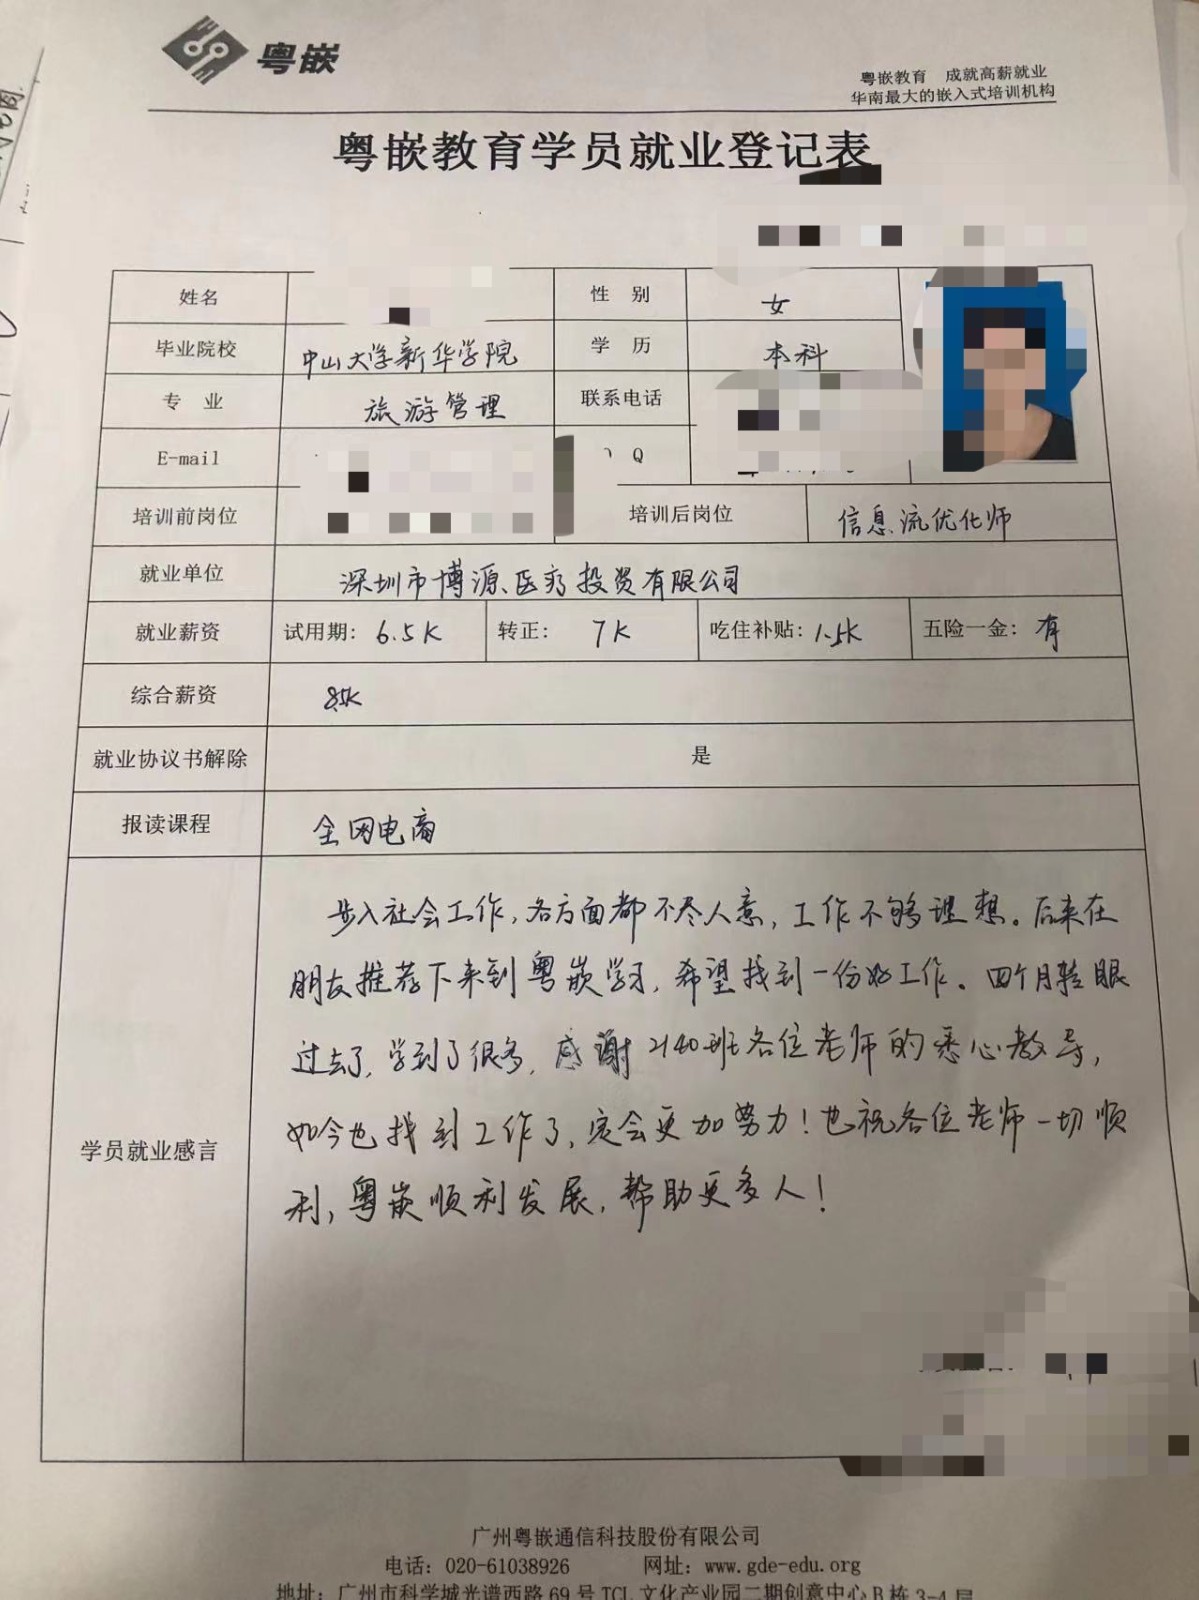 粤嵌
粤嵌教育 成就高薪就业
华南最大的嵌入式培训机构
粤嵌教育学员就业登记表
姓名 性 别 女
毕业院校 中山大学新华学院 学 历 本科
专 业 旅游管理 联系电话
E-mail Q
培训前岗位 培训后岗位 信息流优化师
就业单位 深圳市博源医疗投资有限公司
就业薪资 试用期：6.5K 转正：7K 吃住补贴：1.5K 五险一金：有
综合薪资 8.5K
就业协议书解除 是
报读课程 全网电商
学员就业感言
步入社会工作，各方面都不尽人意，工作不够理想。后来在
朋友推荐下来到粤嵌学习，希望找到一份好工作。四个月转眼
过去了，学到了很多，感谢2140班各位老师的悉心教导，
如今也找到工作了，定会更加努力！也祝各位老师一切顺
利，粤嵌顺利发展，帮助更多人！
广州粤嵌通信科技股份有限公司
电话：020-61038926 网址：www.gde-edu.org
地址：广州市科学城光谱西路69号TCL文化产业园二期创意中心B栋3-4层